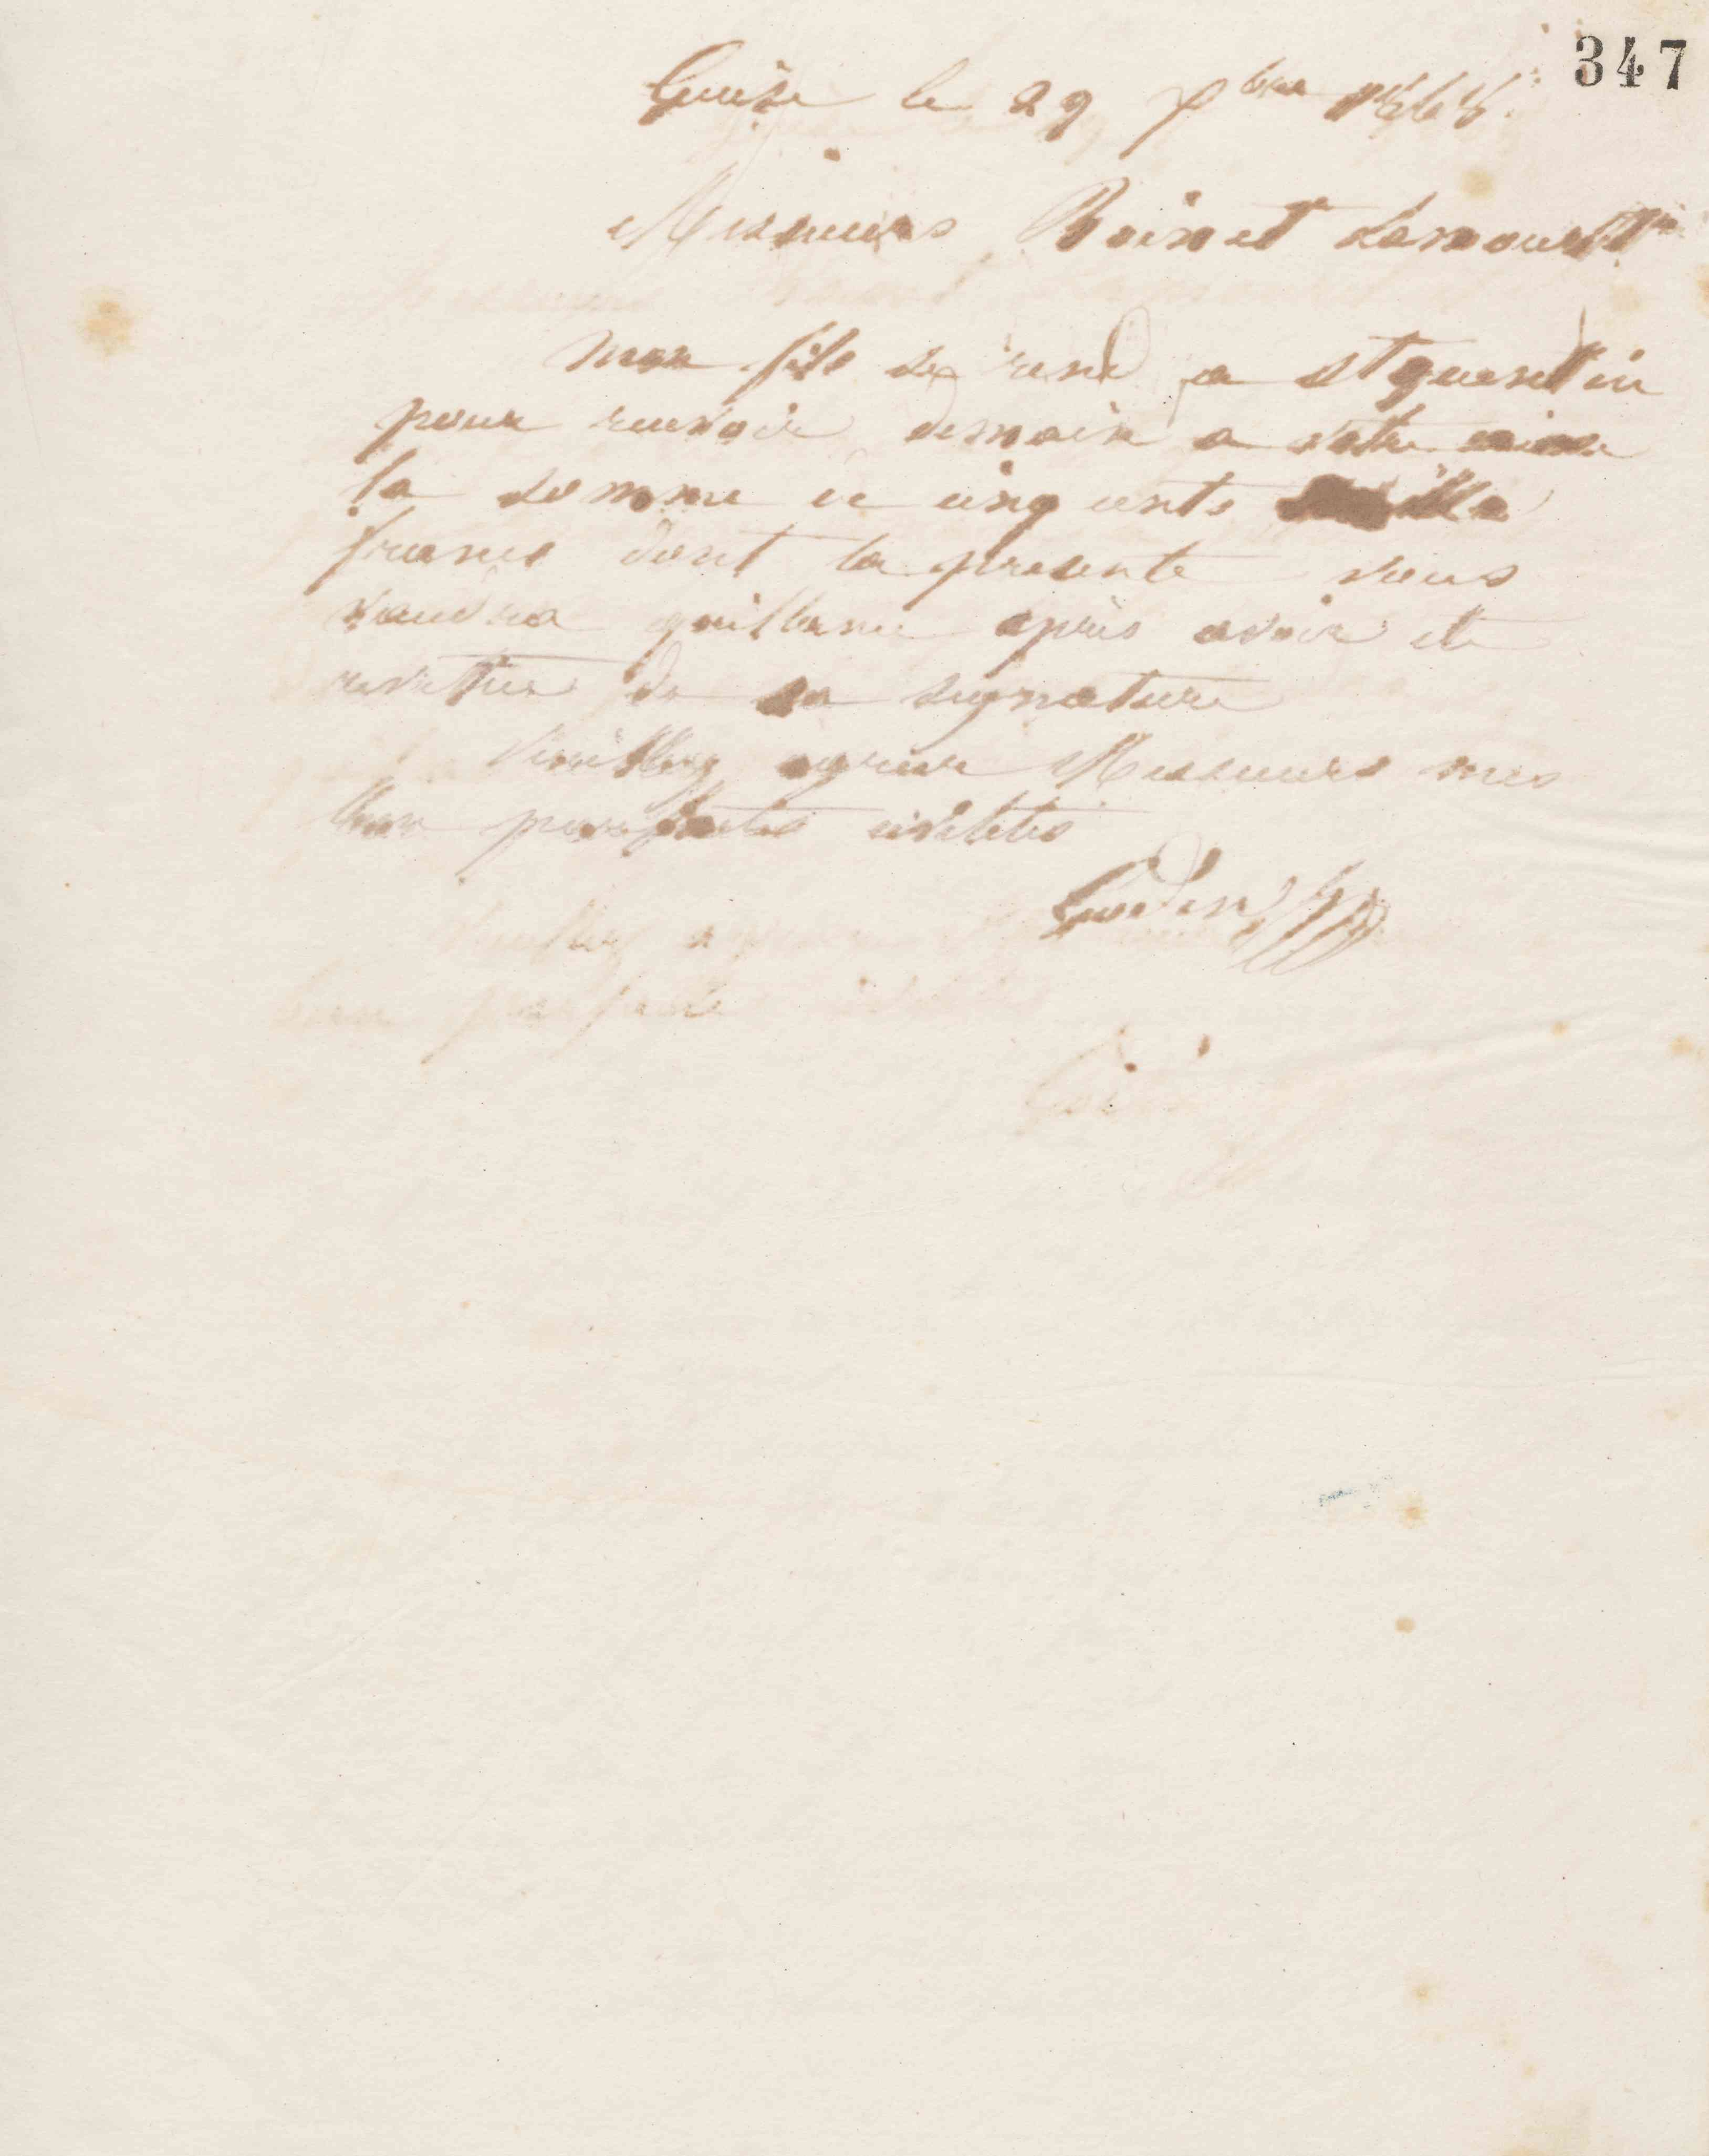 347
Guise le 29 7bre 1868
Messieurs Boinet Lamouret
mon fils se rend a St quentin
pour recevoir demain a votre caisse
la somme de cinq cents
francs dont la presente vous
vaudra quittance après avoir ete
revetue de sa signature
Veuillez agreer Messieurs mes
bien parfaites civilités
Godin